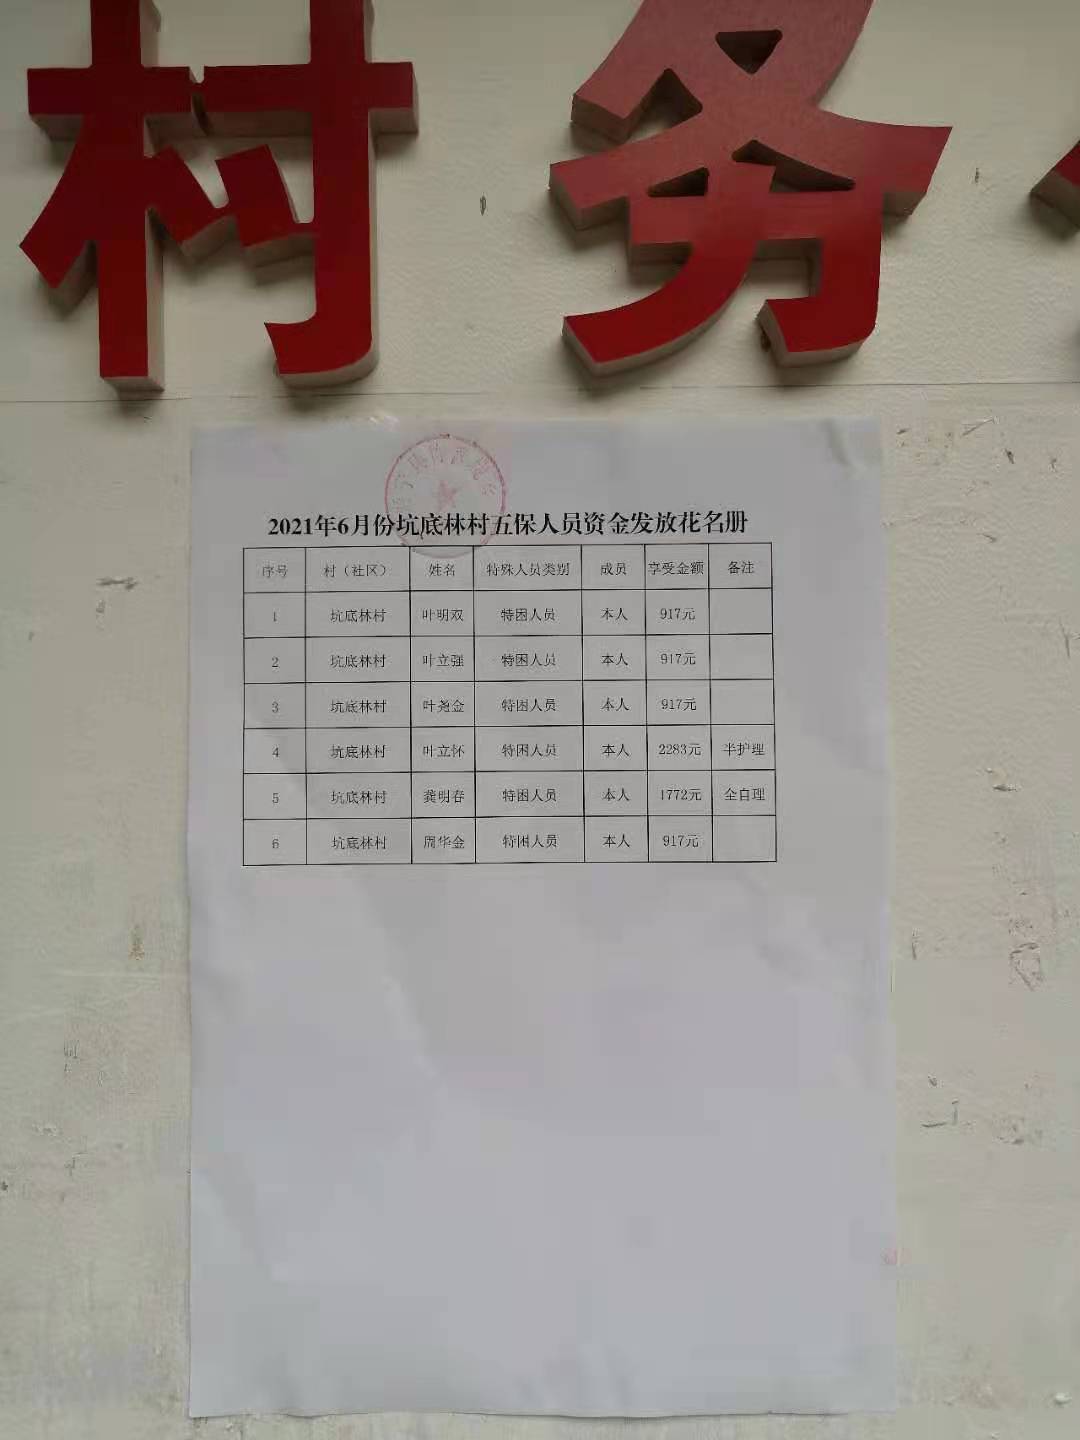 村务
2021年6月份坑底林村五保人员资金发放花名册
序号 村（社区） 姓名 特殊人员类别 成员 享受金额 备注
1 坑底林村 叶明双 特困人员 本人 917元
2 坑底林村 叶立强 特困人员 本人 917元
3 坑底林村 叶尧金 特困人员 本人 917元
4 坑底林村 叶立怀 特困人员 本人 2283元 半护理
5 坑底林村 龚明春 特困人员 本人 1772元 全自理
6 坑底林村 周华金 特困人员 本人 917元